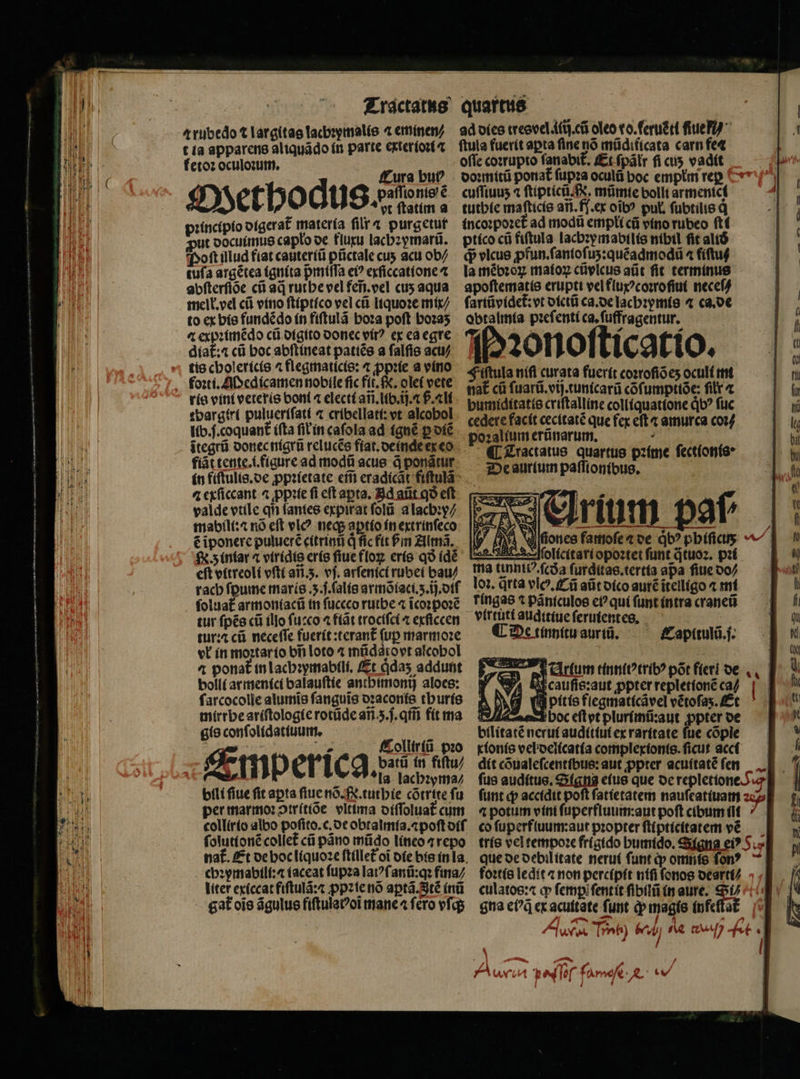 Tractatus
⁊ rubedo ⁊ largitas lachrymalis ⁊ eminen/
tia apparens aliquãdo in parte exteriori ⁊
fetor oculorum.
Cura huiꝰ
Methodus.
passionis ẽ
vt statim a
principio digerat̃ materia silr̃ ⁊ purgetur
put docuimus caplo de fluxu lachrymarũ.
Post illud fiat cauteriũ pũctale cuȝ acu ob/
tusa argẽtea ignita p̃missa eiꝰ exsiccatione ⁊
abstersiõe cũ aq̃ ruthe vel feñ. vel cuȝ aqua
mell̃. vel cũ vino stiptico vel cũ liquore mix/
to ex his fundẽdo in fistulã hora post horaȝ
⁊ exprimẽdo cũ digito donec virꝰ ex ea egre
diat̃: ⁊ cũ hoc abstineat patiẽs a salsis acu/
tis cholericis ⁊ flegmaticis: ⁊ ꝓprie a vino
forti. Medicamen nobile sic fit. ℞. olei vete
ris vini veteris boni ⁊ electi añ. lib. ij. ⁊ ß. ⁊ li
thargiri puluerisati ⁊ cribellati: vt alcohol
lib. j. coquant̃ ista sil̃ in casola ad ignẽ ꝑ diẽ
ĩtegrũ donec nigrũ relucẽs fiat. deinde ex eo
fiãt tente. i. figure ad modũ acus q̃ ponãtur
in fistulis. de ꝓprietate em̃ eradicãt fistulã
⁊ exsiccant ⁊ ꝓprie si est apta. Ad aũt qđ est
valde vtile qñ sanies expirat solũ a lachry/
mabili: ⁊ nõ est vlcꝰ neqȝ aptio in extrinseco
ẽ ĩponere puluerẽ citrinũ q̃ sic fit ẜm Almã.
℞. ʒ iniar ⁊ viridis eris siue flor̃ eris qđ idẽ
est vitreoli vsti añ. ʒ. vj. arsenici rubei bau/
rach spume maris. ʒ. j. salis armõiaci. ʒ. ij. dis
soluat̃ armoniacũ in succo ruthe ⁊ ĩcorporẽ
tur sp̃es cũ illo succo ⁊ fiãt trocisci ⁊ exsiccen
tur: ⁊ cũ necesse fuerit: terant̃ sup̃ marmore
vl̃ in mortario bñ loto ⁊ mũdato vt alcohol
⁊ ponat̃ in lachrymabili. Et q̃daȝ addunt
bolli armenici balaustie anthimonij aloes:
sarcocolle alumis sanguis draconis thuris
mirrhe aristologie rotũde añ. ʒ. j. qm̃ fit ma
gis consolidatiuum.
Collirĩũ pro
Emperica.
batũ in fistu/
la lachryma/
bili siue sit apta siue nõ. ℞. tuthie cõtrite su
per marmor ꝯtritiõe vltima dissoluat̃ cum
collirio albo posito. c. de obtalmia. ⁊ post dis
solutionẽ collet̃ cũ pãno mũdo lineo ⁊ repo
nat̃. Et de hoc liquore stillet̃ oĩ die bis in la
chrymabili: ⁊ iaceat supra latꝰ sanũ: qr̃ fina/
liter exiccat fistulã: ⁊ ꝓprie nõ aptã. Itẽ inũ
gat̃ oĩs ãgulus fistulatꝰ oĩ mane ⁊ sero vsqȝ
quartus
ad dies tres vel. iiij. cũ oleo ro. feruẽti siue fi/
stula fuerit apta siue nõ mũdificata carn fe ⁊
osse corrupto sanabit̃. Et sp̃alr̃ si cuȝ vadit
dormitũ ponat̃ supra oculũ hoc emplm̃ rep̃
cussiuuȝ ⁊ stipticũ. ℞. mũmie bolli armenici
tuthie masticis añ. ʒ j. ex oĩbꝰ pul̃. subtilis q̃
incorporet̃ ad modũ empli cũ vino rubeo sti
ptico cũ fistula lachrymabilis nihil fit aliđ
qꝫ vlcus ꝓfun. saniosuȝ: quẽadmodũ ⁊ fistuỻ
la mẽbrorꝫ maior̃ cũ vlcus aũt sit terminus
apostematis erupti vel fluxꝰ corrosiui necesỻ
sariũ videt̃: vt dictũ ca. de lachrymis ⁊ ca. de
obtalmia presenti ca. suffragentur.
Pronosticatio.
Fistula nisi curata fuerit corrosiõeȝ oculi mi
nat̃ cũ suarũ. vij. tunicarũ cõsumptiõe: silr̃ ⁊
humiditatis cristalline colliquatione q̃bꝰ suc
cedere facit cecitatẽ que fex est ⁊ amurca corỻ
poralium erũnarum.
¶ Tractatus quartus prime sectionis
De aurium passionibus.
Aurium pas/
siones famose ⁊ de q̃bꝰ phisicuȝ
solicitari oportet sunt q̃tuor. pri
ma tinnitꝰ. scđa surditas. tertia ap̃a siue do/
lor. q̃rta vlcꝰ. Cũ aũt dico aurẽ ĩtelligo ⁊ mi
ringas ⁊ pãniculos eiꝰ qui sunt intra craneũ
virtuti auditiue seruientes.
¶ De tinnitu auriũ. Capitulũ. j.
Aurium tinnitꝰ tribꝰ põt fieri de
causis: aut ꝓpter repletionẽ ca/
pitis flegmaticã vel vẽtosaȝ. Et
hoc est vt plurimũ: aut ꝓpter de
bilitatẽ nerui auditiui ex raritate sue cõple
xionis vel delicatia complexionis. sicut acci
dit cõualescentibus: aut ꝓpter acuitatẽ sen
sus auditus. Signa eius que de repletione
sunt qꝫ accidit post satietatem nauseatiuam
⁊ potum vini superfluum: aut post cibum sit
co superfluum: aut propter stipticitatem vẽ
tris vel tempore frigido humido. Signa eiꝰ
que de debilitate nerui sunt qꝫ omnis sonꝰ
fortis ledit ⁊ non percipit nisi sonos dearti/
culatos: ⁊ qꝫ semꝑ sentit sibilũ in aure. Si/
gna eiꝰ q̃ ex acuitate sunt qꝫ magis infestat̃